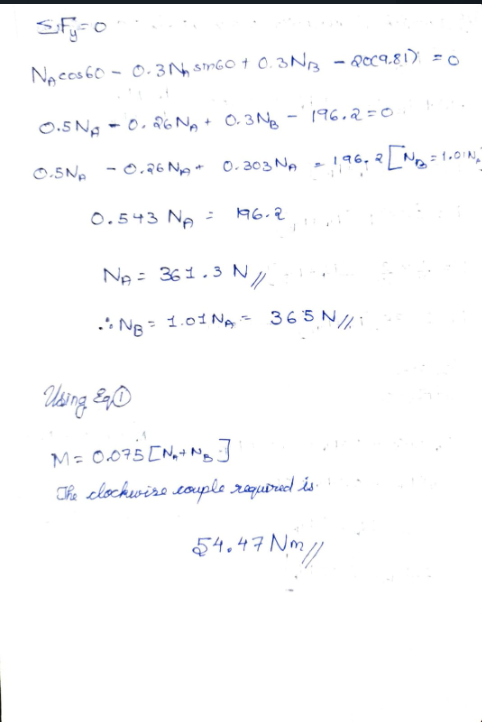 ΣFy=0
NA cos60 - 0.3NA sin60 + 0.3NB - 20(9.81) = 0
0.5NA - 0.26NA + 0.3NB - 196.2 = 0
0.5NA - 0.26NA + 0.303NA = 196.2 [NB = 1.01NA
0.543 NA = 196.2
NA = 361.3 N//
∴ NB = 1.01NA = 365 N//
Using Eq①
M = 0.075[NA + NB]
The clockwise couple required is
54.47 Nm//